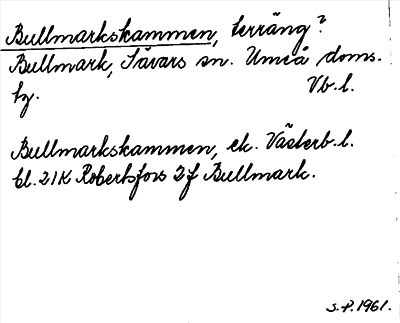 Bullmarkskammen, terräng?
Bullmark, Sävars sn. Umeå doms.
hg. Vb.l.
Bullmarkskammen, ek. Västerb.l.
bl. 21K Robertsfors 2f Bullmark.
S.P. 1961.